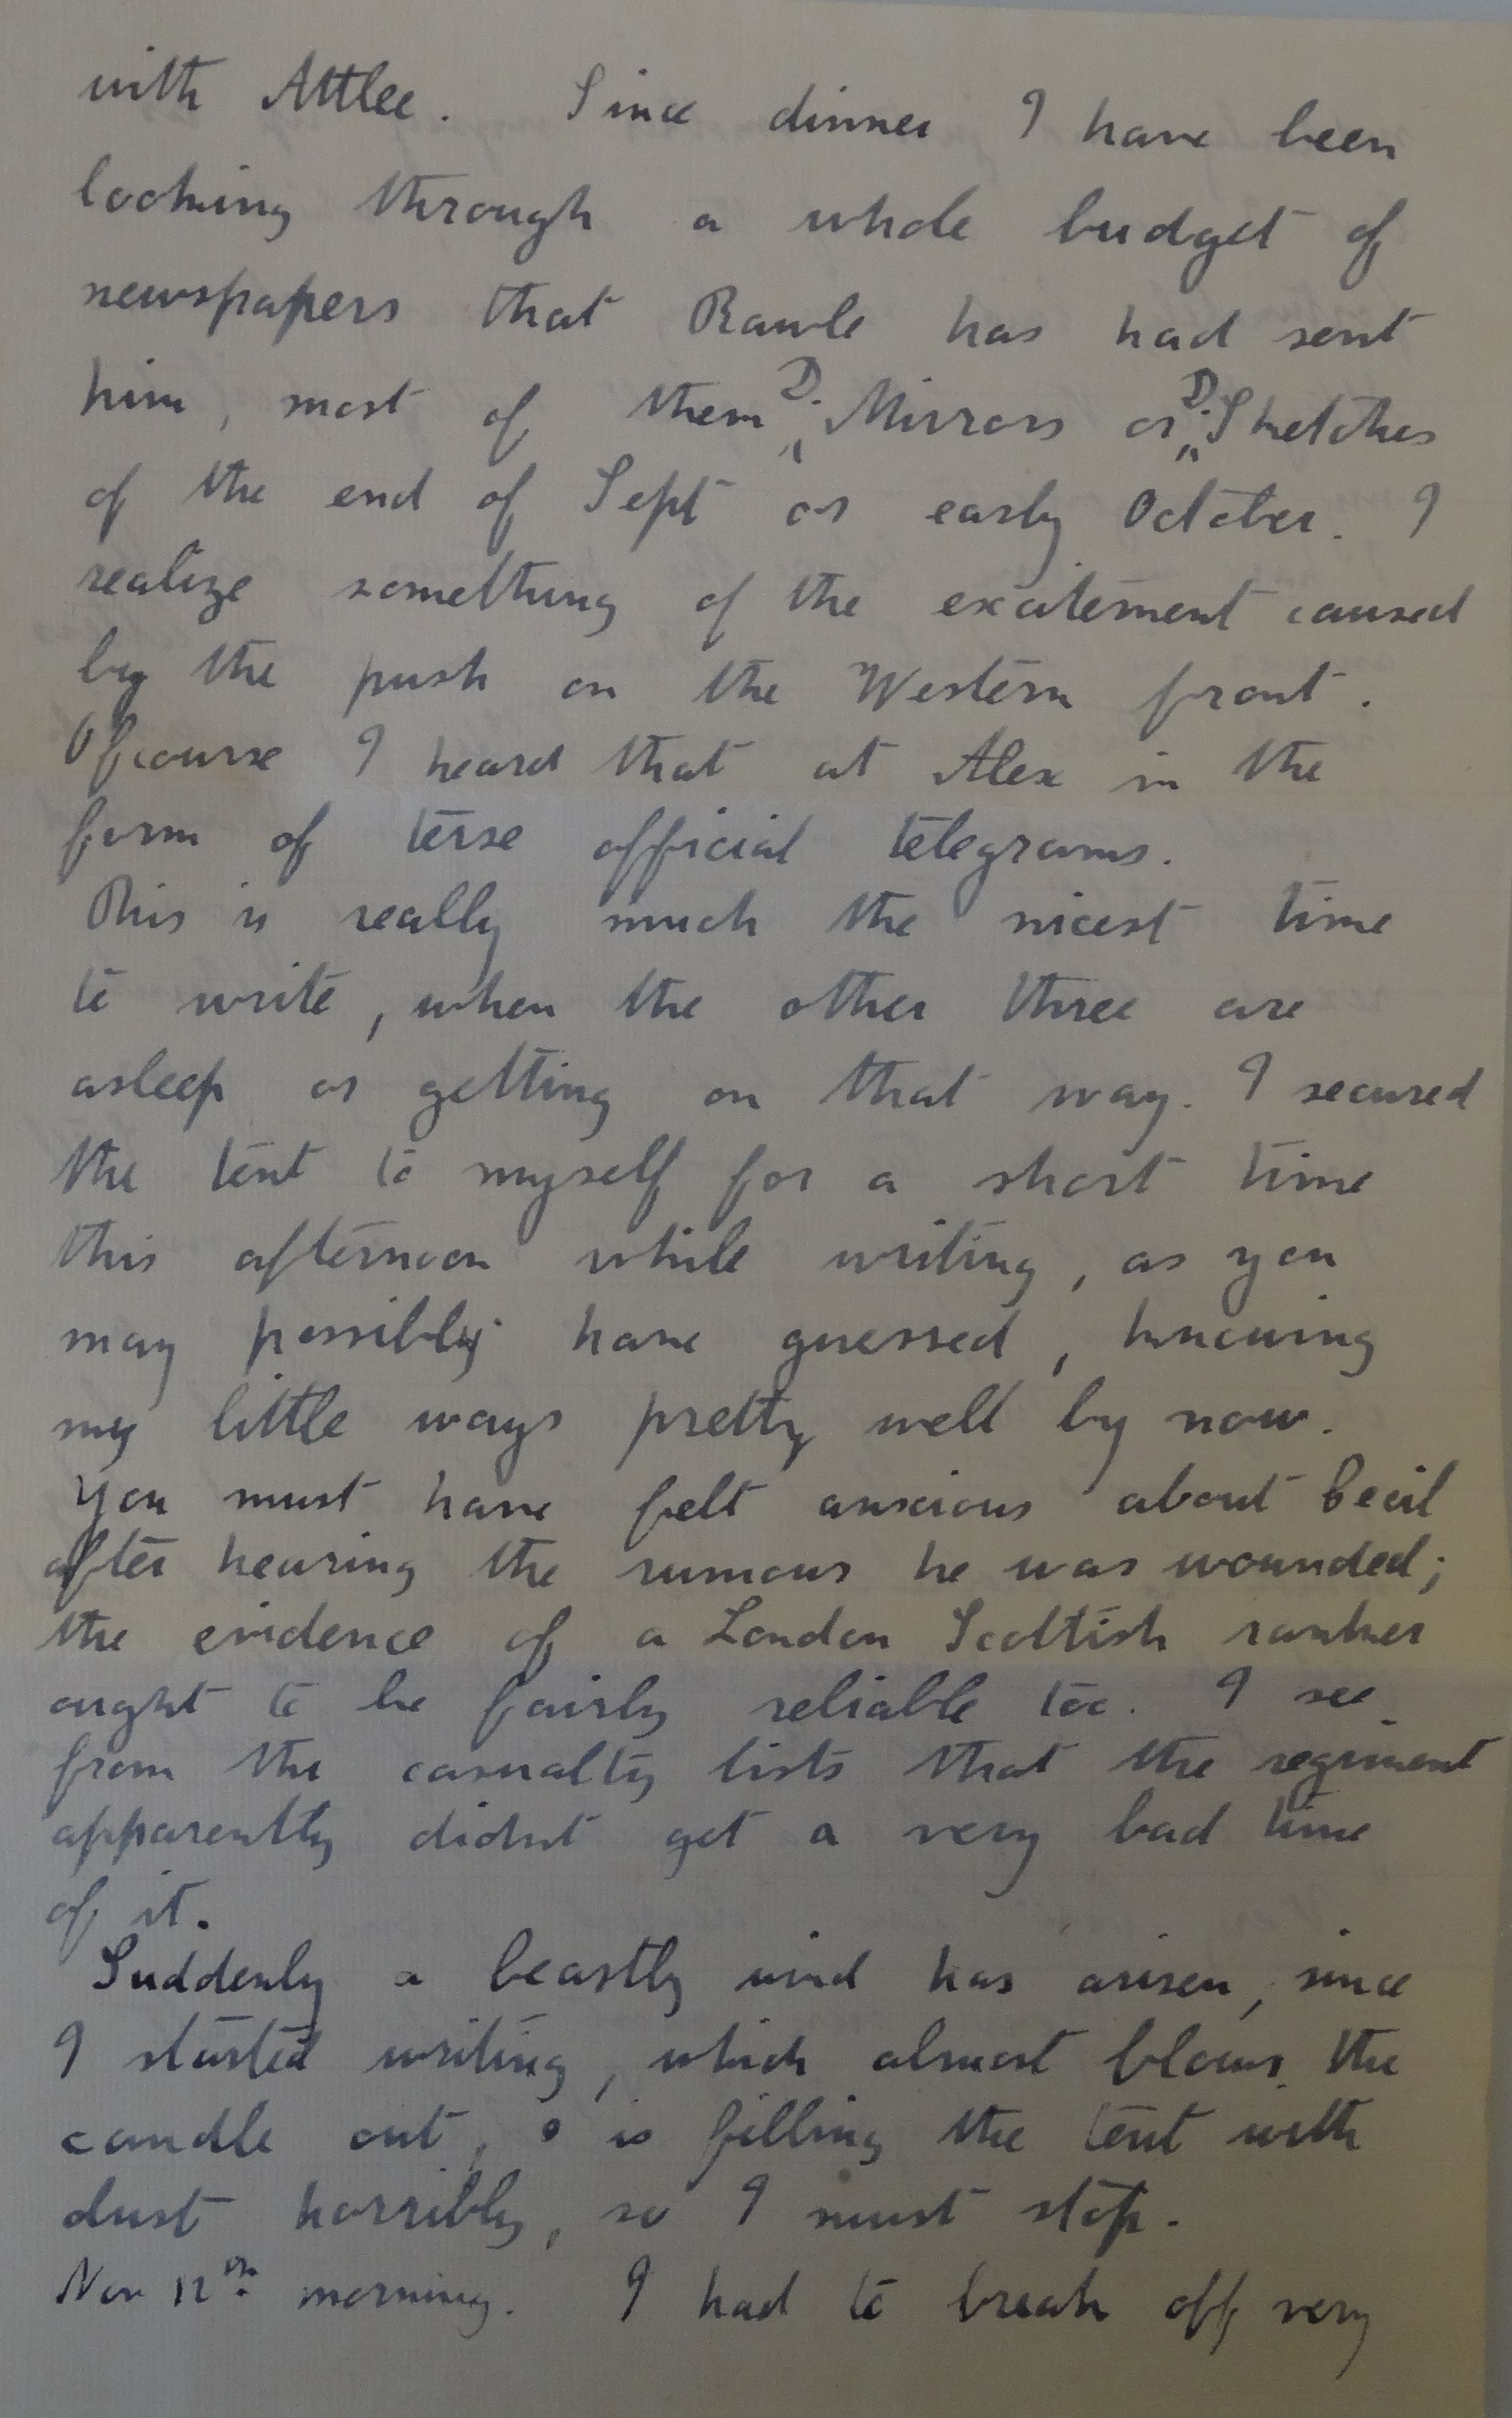 with Attlee. Since dinner I have been
looking through a whole budget of
newspapers that Rawle has had sent
him, most of them D. Mirrors or D. Sketches
of the end of Sept or early October. I
realize something of the excitement caused
by the push on the Western front.
Ofcourse I heard that at Alex in the
form of terse official telegrams.
This is really much the nicest time
to write, when the other three are
asleep or getting on that way. I secured
the tent to myself for a short time
this afternoon while writing, as you
may possibly have guessed, knowing
my little ways pretty well by now.
You must have felt anxious about Cecil
after hearing the rumour he was wounded;
the evidence of a London Scottish ranker
ought to be fairly reliable too. I see
from the casualty lists that the regiment
apparently didnt get a very bad time
of it.
Suddenly a beastly wind has arisen, since
I started writing, which almost blows the
candle out, & is filling the tent with
dust horribly, so I must stop.
Nov 12th. morning. I had to break off very